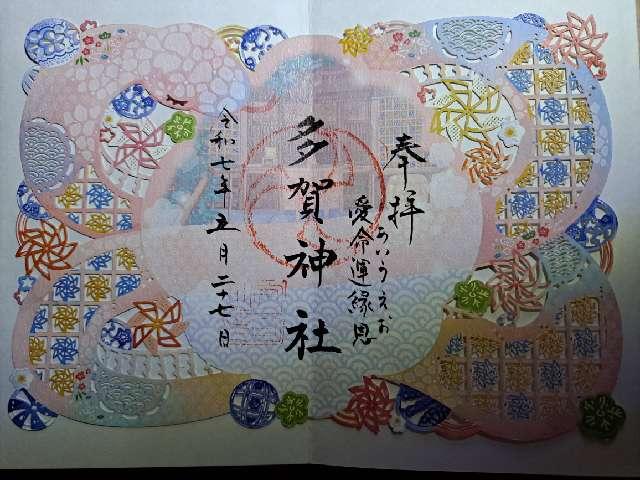 奉拝
愛命運縁恩
あいうえお
多賀神社
令和七年五月二十七日